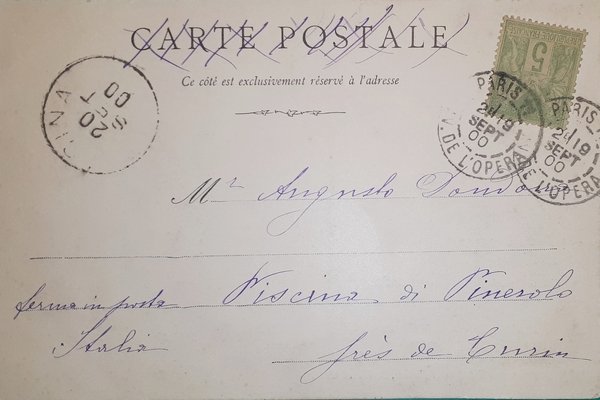 CARTE POSTALE
Ce côté est exclusivement réservé à l'adresse
20
SET
00
5
PARIS
2E/19
SEPT
00
A. DE L'OPERA
PARIS
2E/19
SEPT
00
DE L'OPERA
Mr. Augusto
Piscina di Pinerolo
ferma in posta
Italia
près de Turin